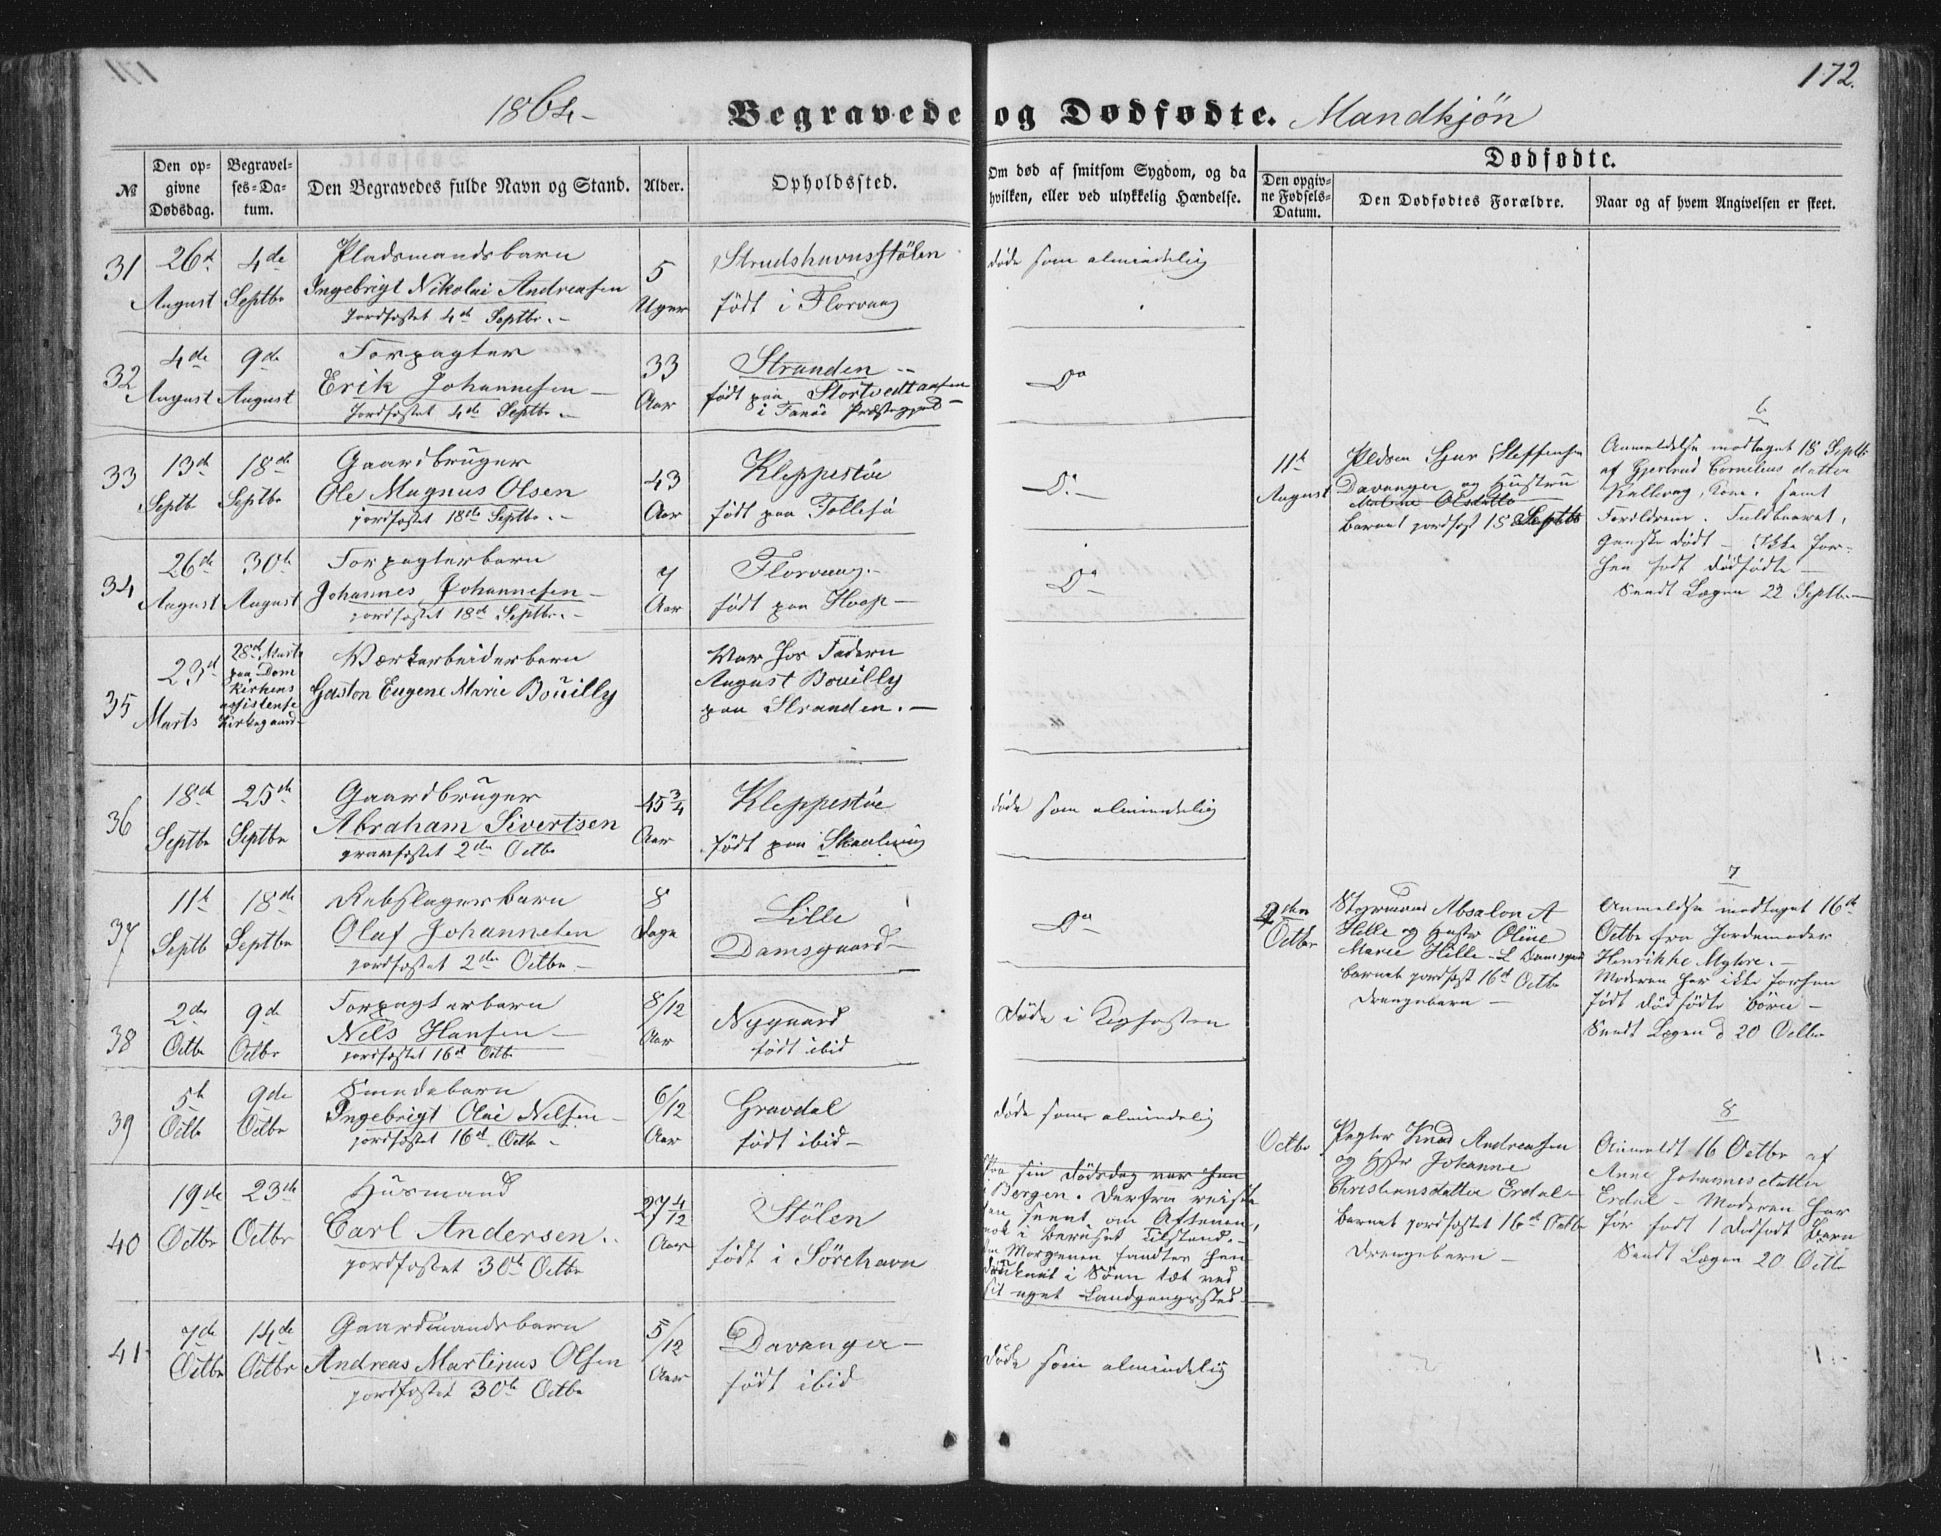 172.
1864 - Begravede og Dødfødte. Mandkjön
№ Den opgivne Dødsdag. Begravelses-Datum. Den Begravedes fulde Navn og Stand. Alder. Opholdssted. Om død af smitsom Sygdom, og da hvilken, eller ved ulykkelig Hændelse.
Dødfødte.
Den opgivne Fødsels-Datum. Den Dødfødtes Forældre. Naar og af hvem Angivelsen er skeet.
31 26d August 4de Septbr
Pladsmandsbarn
Ingebrigt Nikolai Andreasen
Jordfæstet 4de Septbr. -
5 Uger
Strudshavnsstölen
født i Florvaag
døde som almindelig
32 4de August 9de August
Forpagter
Erik Johannesen -
Jordfæstet 4de Septbr. -
33 Aar
Stranden -
født paa
i Fanöe Præstegjeld -
Do
33 13de Septb 18de Septbr
Gaardbruger
Ole Magnus Olsen
jordfæstet 18de Septbr. -
43 Aar
Kleppestöe
født paa Follesö
Do -
34 26de August 30te August
Forpagterbarn
Johannes Johannesen -
jordfæstet 18de Septbr. -
7 Aar
Florvaag -
født paa Hoop -
Do -
35 23d Marts
28de Marts
paa Dom
Kirkens
assistents
Kirkegaard -
Værkarbeiderbarn
Gaston Eugene Marie Bouilly
Var hos Faderen
August Bouilly
paa Stranden. -
36 18de Septbr 25de Septbr
Gaardbruger
Abraham Sivertsen
gravfæstet 2den Octbr
45 3/4 Aar
Kleppestöe
født paa Skaalevig
døde som almindelig
37 11te Septb 18de Septbr
Rebslagerbarn
Oluf Johannesen
jordfæstet 2den Octbr -
8 Dage
Lille
Damsgaard -
Do -
38 2den Octbr 9de Octbr
Forpagterbarn
Nils Hansen -
jordfæstet 16de Octbr
8/12 Aar
Nygaard
født ibid
Døde i
39 5te Octbr 9de Octbr
Smedebarn
Ingebrigt Olai Nilsen -
jordfæstet 16de Octbr -
6/12 Aar
Gravdal
født ibid -
døde som almindelig
40 19de Octbr 23de Octbr
Husmand
Carl Andersen. -
jordfæstet 30te Octbr
27 4/12 Aar
Stölen
født i Sörehavn
Paa sin Dödsdag var han
i Bergen. Derfra reiste
han seent om Aftenen,
nok i beruset Tilstand. -
Om Morgenen fandtes han
druknet i Söen tæt ved
sit eget Landgangssted -
41 7de Octbr 14de Octbr
Gaardmandsbarn
Andreas Martinus Olsen
jordfæstet 30te Octbr
5/12 Aar
Davanger -
født ibid
døde som almindelig
11te August
Pldsm Sjur Steffensen
Davanger og Hustru
Malene Olsdatter
barnet jordfæst 18 Septbr
6
Anmeldelse modtaget 18 Septbr
af Gjertrud Cornelius datter
Kone. samt
Forældrene. Fuldbaaret,
Ganske dødt - Ikke for-
hen født dødfødte -
Sendt Lægen 22 Septbr -
2den Octbr
Styrmand Absalon A
Hille og Hustr Oline
Marie Hille - L Damsgaard
barnet jordfæst 16de Octbr
Drengebarn -
7
Anmeldelse modtaget 16de
Octbr fra Jordemoder
Henrikke Myhre. -
Moderen har ikke forhen
født dødfødte börn -
Sendt Lægen d 20 Octbr
Octbr
Pagter Knud Andreassen
og Hstr Johanne
Christiansdatter Erdal -
barnet jordfæstet 16de Octbr
Drengebarn -
8
Anmeldt 16 Octbr af
Anne Johannesdatter
Erdal - Moderen har
før født 1 dødfødt Barn
Sendt Lægen 20 Octbr